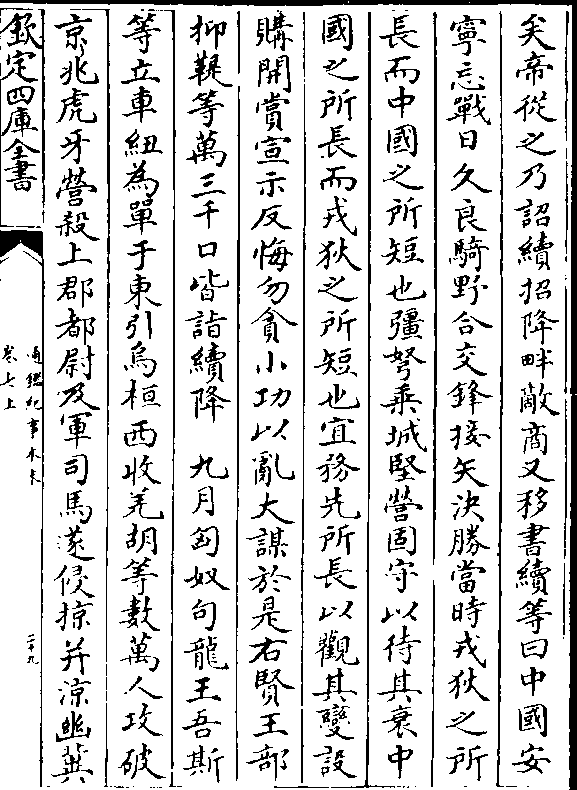 矣帝從之乃詔續招降畔敵商又移書續等曰中國安
寧忘戰日久良騎野合交鋒接矢決勝當時戎狄之所
長而中國之所短也彊弩乘城堅營固守以待其衰中
國之所長而戎狄之所短也宜務先所長以觀其變設
購開賞宣示反悔勿貪小功以亂大謀於是右賢王部
抑鞮等萬三千口皆詣續降　九月匈奴句龍王吾斯
等立車紐為單于東引烏桓西收羌胡等數萬人攻破
京兆虎牙營殺上郡都尉及軍司馬遂侵掠并涼幽冀
欽定四庫全書
通鑑紀事本末
卷七上
二十九